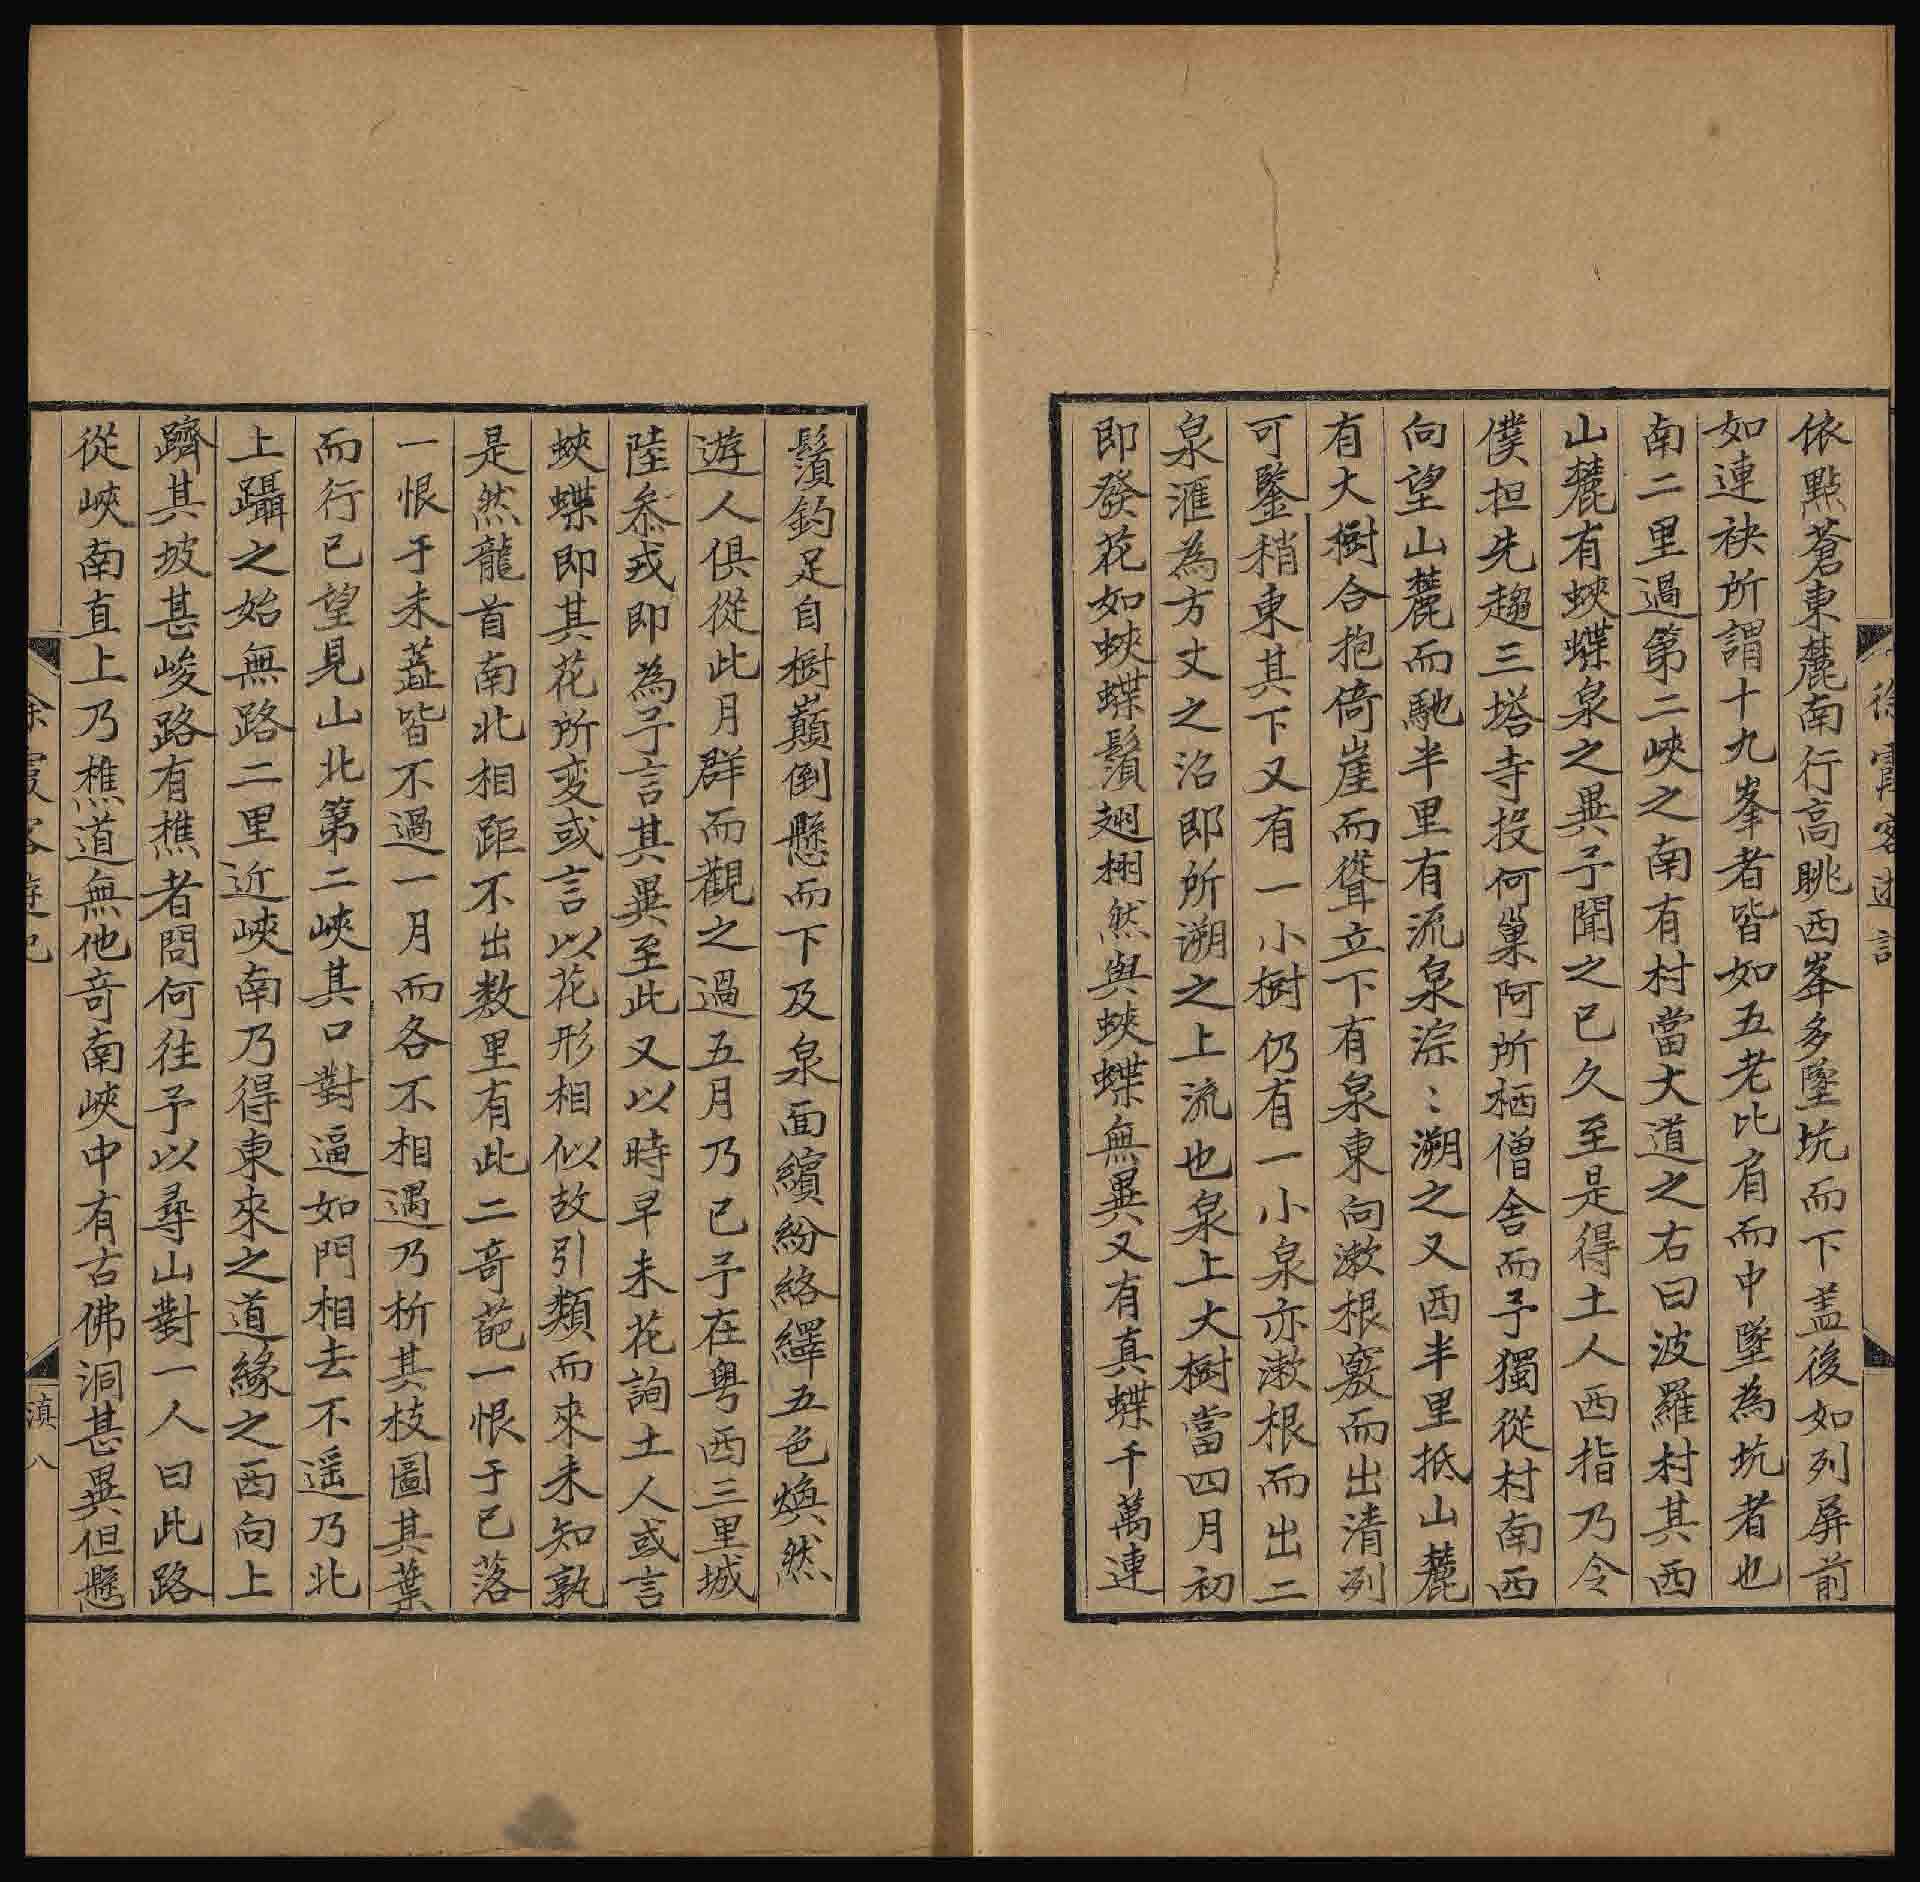 依點蒼東麓南行高眺西峯多墜坑而下盖後如列屏前
如連袂所謂十九峯者皆如五老比肩而中墜為坑者也
南二里過第二峽之南有村當大道之右曰波羅村其西
山麓有蛺蝶泉之異予聞之已久至是得土人西指乃令
僕担先趨三塔寺投何巢阿所栖僧舍而予獨從村南西
向望山麓而馳半里有流泉淙〻溯之又西半里抵山麓
有大樹合抱倚崖而聳立下有泉東向漱根竅而出清冽
可鑒稍東其下又有一小樹仍有一小泉亦漱根而出二
泉滙為方丈之沼即所溯之上流也泉上大樹當四月初
即發花如蛺蝶鬚翅栩然與蛺蝶無異又有真蝶千萬連
鬚鈎足自樹巔倒懸而下及泉面繽紛絡繹五色煥然
遊人俱從此月群而觀之過五月乃已予在粤西三里城
陸叅戎即為予言其異至此又以時早未花詢土人或言
蛺蝶即其花所变或言以花形相似故引類而來未知孰
是然龍首南北相距不出数里有此二竒葩一恨于已落
一恨于未蕋皆不過一月而各不相遇乃析其枝圖其葉
而行已望見山北第二峽其口對逼如門相去不遥乃北
上躡之始無路二里近峽南乃得東來之道緣之西向上
躋其坡甚峻路有樵者問何往予以尋山對一人曰此路
從峽南直上乃樵道無他竒南峽中有古佛洞甚異但懸
徐霞客遊記
滇八